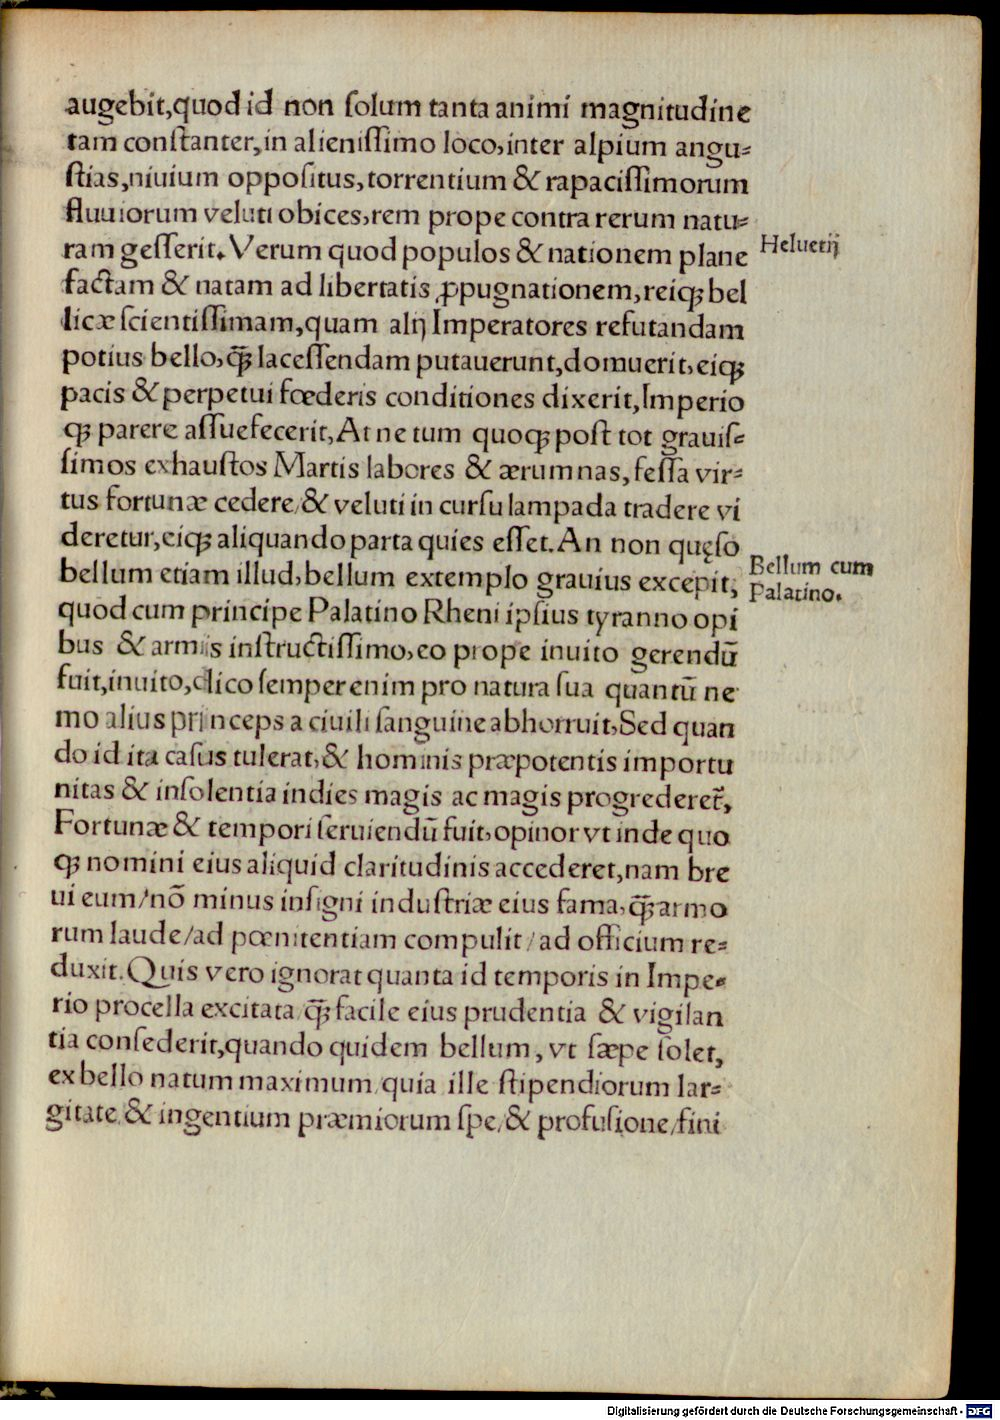 augebit,quod id non ſolum tanta animi magnitudine
tam conſtanter,in alieniſſimo loco,inter alpium angu⸗
ſtias,niuium oppoſitus,torrentium & rapaciſſimorum
fluuiorum veluti obices,rem prope contra rerum natu⸗
ram geſſerit. Verum quod populos & nationem plane
Heluetij
factam & natam ad libertatis ꝓpugnationem,reiqꝫ bel
licæ ſcientiſſimam,quam alij Imperatores refutandam
potius bello,qꝫ̃ laceſſendam putauerunt,domuerit,eiqꝫ
pacis & perpetui fœderis conditiones dixerit,Imperio
qꝫ parere aſſuefecerit,At ne tum quoqꝫ poſt tot grauiſ⸗
ſimos exhauſtos Martis labores & ærumnas,feſſa vir⸗
tus fortunæ cedere/& veluti in curſu lampada tradere vi
deretur,eiqꝫ aliquando parta quies eſſet.An non quęſo
Bellum cum
Palatino.
bellum etiam illud,bellum extemplo grauius excepit,
quod cum principe Palatino Rheni ipſius tyranno opi
bus & armis inſtructiſſimo,eo prope inuito gerendũ
fuit,inuito,dico ſemper enim pro natura ſua quantũ ne
mo alius princeps a ciuili ſanguine abhorruit,Sed quan
do id ita caſus tulerat,& hominis præpotentis importu
nitas & inſolentia indies magis ac magis progrederet̃,
Fortunæ & tempori ſeruiendũ fuit,opinor vt inde quo
qꝫ nomini eius aliquid claritudinis accederet,nam bre
ui eum/nõ minus inſigni induſtriæ eius fama,qꝫ̃ armo
rum laude/ad pœnitentiam compulit/ad officium re⸗
duxit.Quis vero ignorat quanta id temporis in Impe⸗
rio procella excitata/qꝫ̃ facile eius prudentia & vigilan
tia conſederit,quando quidem bellum, vt ſæpe ſolet,
ex bello natum maximum/quia ille ſtipendiorum lar⸗
gitate & ingentium præmiorum ſpe/& profuſione/fini
Digitalisierung gefördert durch die Deutsche Forschungsgemeinschaft - DFG